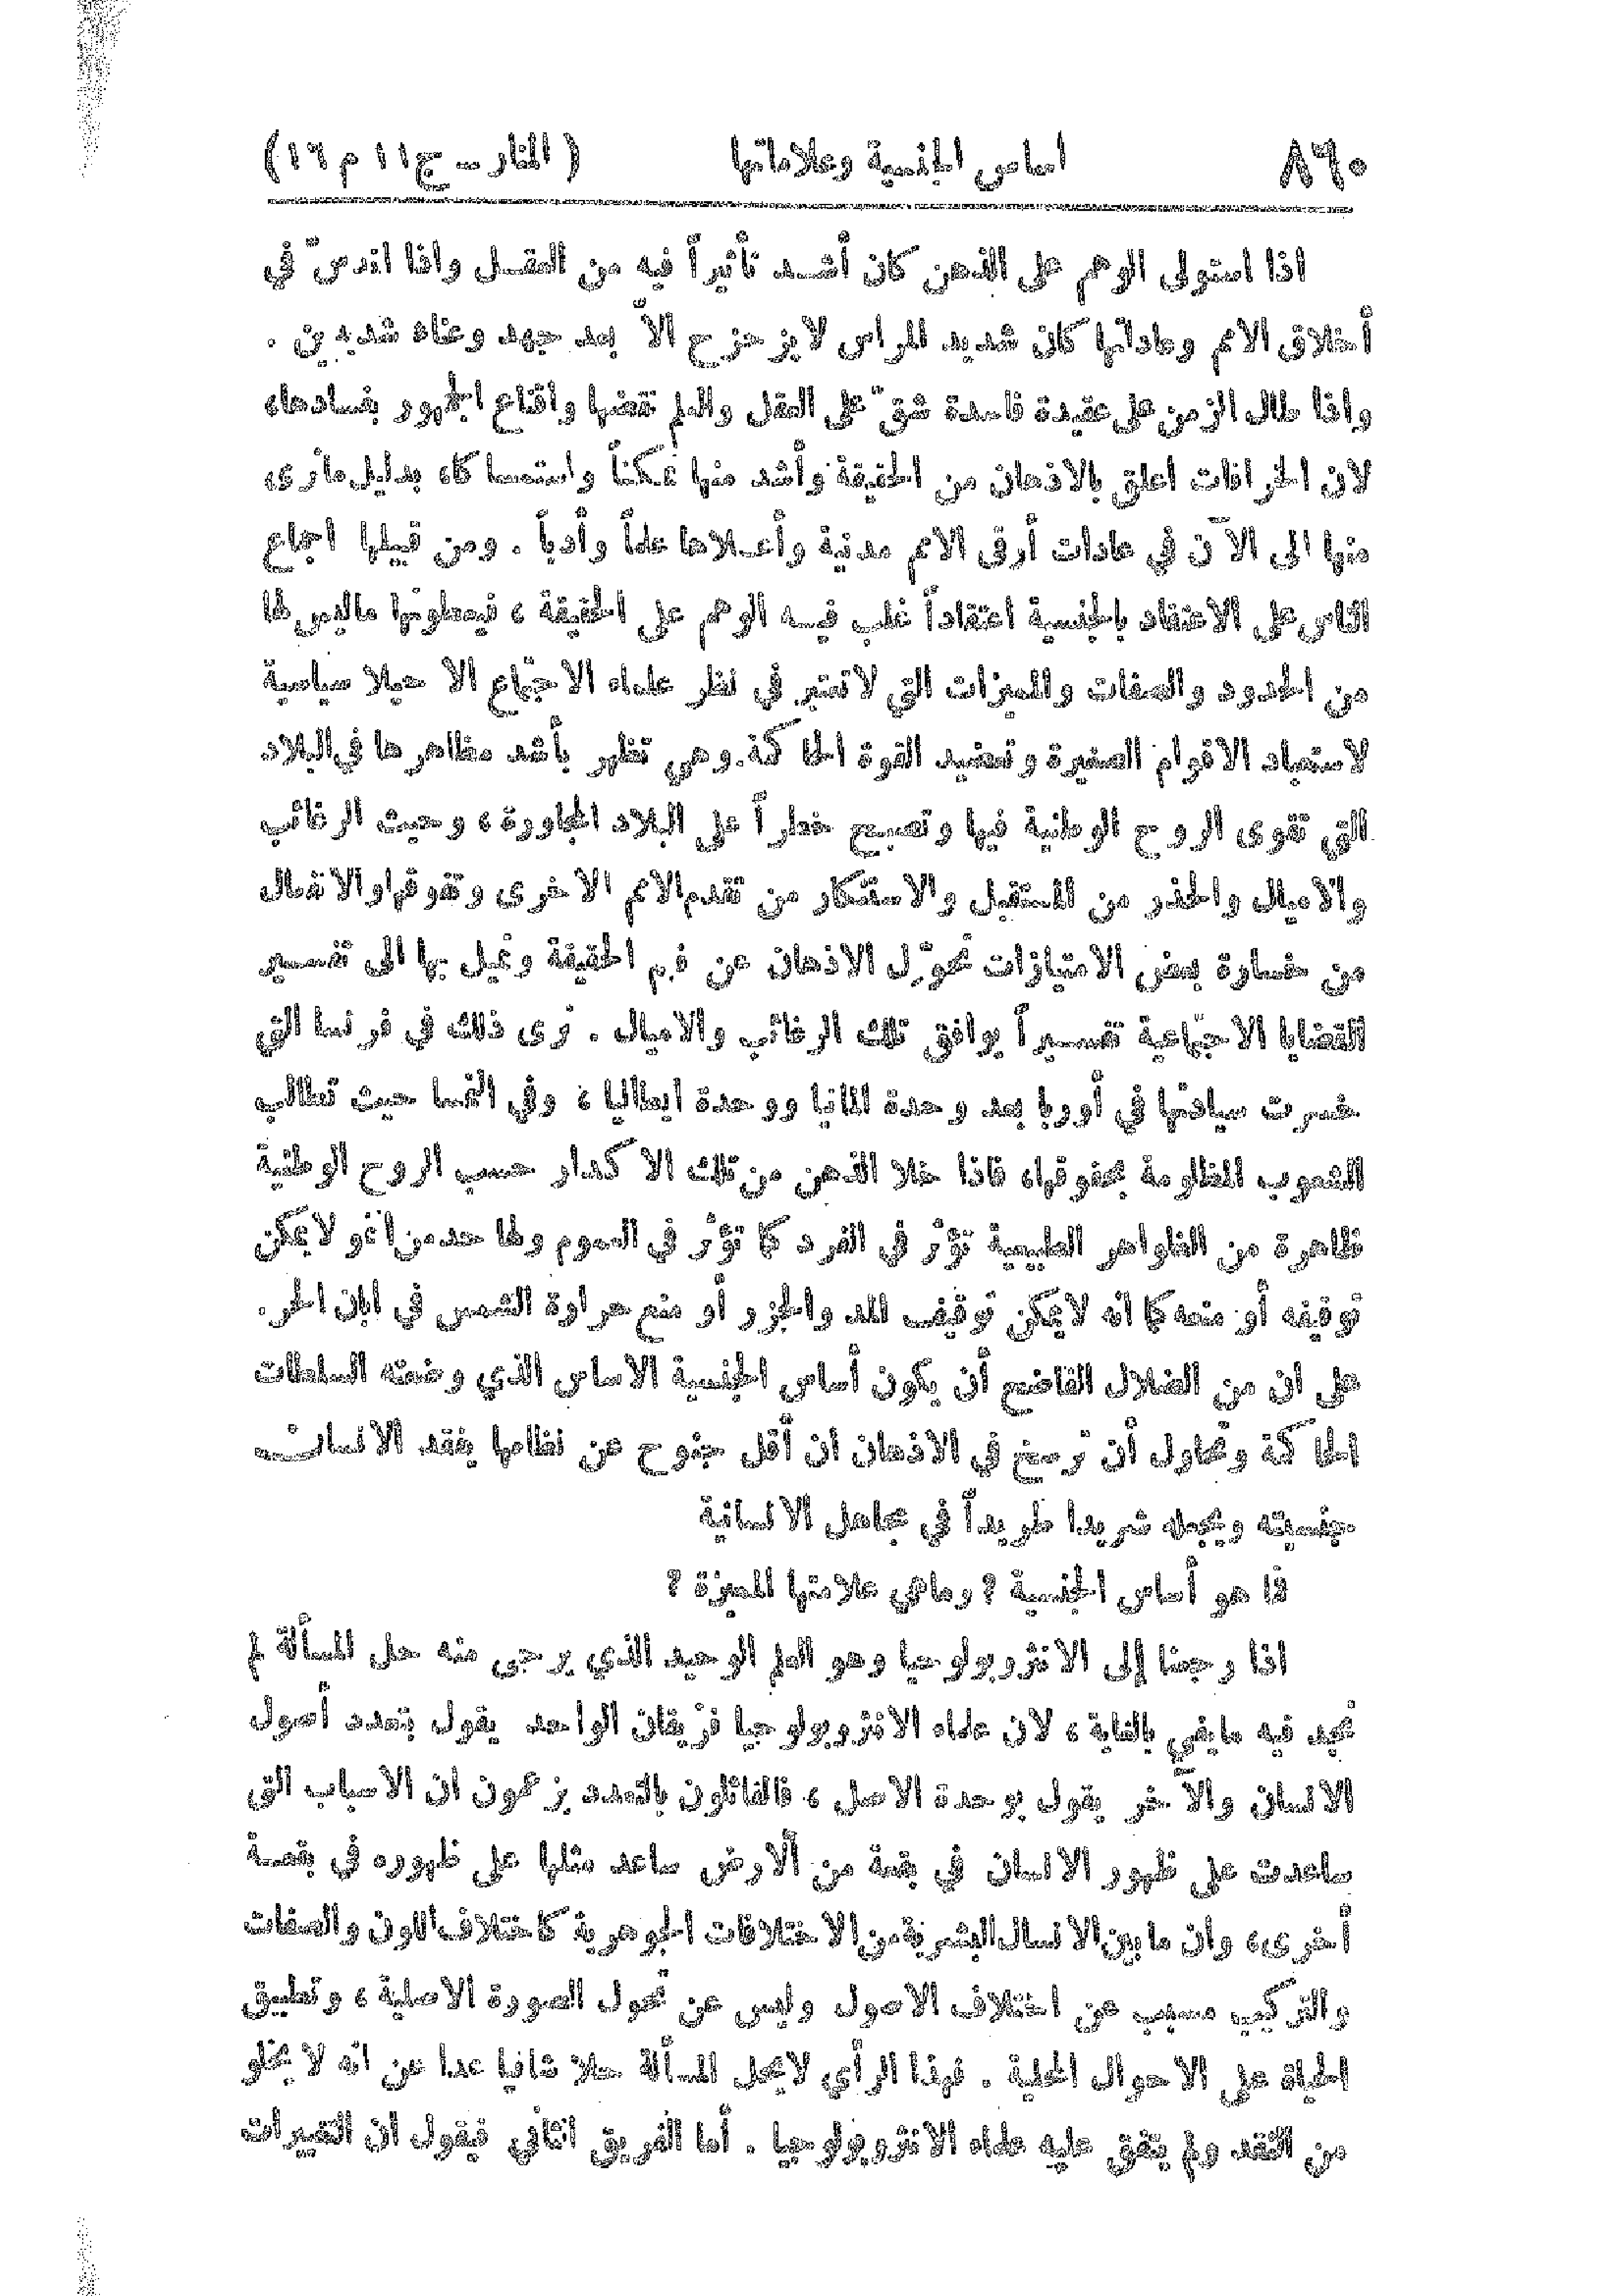 ٨٦٠ اساس الجنسية وعلاماتها (المنار – ج ١١ م ١٦)
اذا استولى الوهم على الذهن كان أشد تأثيراً فيه من العقل واذا اندسّ في
أخلاق الامم وعاداتها كان شديد المراس لايزحزح الاّ بعد جهد وعناء شديدين .
واذا طال الزمن على عقيدة فاسدة شقّ على العقل والعلم نقضها واقناع الجمهور بفسادها،
لان الخرافات اعلق بالاذهان من الحقيقة وأشد منها تمكناً واستمساكا، بدليل مانرى
منها الى الآن في عادات أرقى الامم مدنية وأعلاها علماً وأدباً . ومن قبيلها اجماع
الناس على الاعتقاد بالجنسية اعتقاداً غلب فيه الوهم على الحقيقة ، فيعطونها ماليس لها
من الحدود والصفات والمميزات التي لاتعتبر في نظر علماء الاجتماع الا حيلا سياسية
لاستعباد الاقوام الصغيرة وتعضيد القوة الحاكمة. وهي تظهر بأشد مظاهرها في البلاد
التي تقوى الروح الوطنية فيها وتصبح خطراً على البلاد المجاورة ، وحيث الرغائب
والاميال والحذر من المستقبل والاستنكار من تقدم الامم الاخرى وتفوقها والانفعال
من خسارة بعض الامتيازات تحوّل الاذهان عن فهم الحقيقة وتميل بها الى تفسير
القضايا الاجتماعية تفسيراً يوافق تلك الرغائب والاميال . نرى ذلك في فرنسا التي
خسرت سيادتها في أوربا بعد وحدة المانيا ووحدة ايطاليا ، وفي النمسا حيث تطالب
الشعوب المظلومة بحقوقها، فاذا خلا الذهن من تلك الاكدار حسب الروح الوطنية
ظاهرة من الظواهر الطبيعية تؤثر في الفرد كما تؤثر في العموم ولها حد من النمو لايمكن
توقيفه أو منعه كما انه لايمكن توقيف المد والجزر أو منع حرارة الشمس في ابان الحر.
على ان من الضلال الفاضح أن يكون أساس الجنسية الاساس الذي وضعته السلطات
الحاكمة وتحاول أن ترسخ في الاذهان ان أقل جنوح عن نظامها يفقد الانسان
جنسيته ويجعله شريدا طريداً في مجاهل الانسانية
فما هو أساس الجنسية ؟ وماهي علامتها المميزة ؟
اذا رجعنا إلى الانثروبولوجيا وهو العلم الوحيد الذي يرجى منه حل المسألة لم
نجد فيه مايفي بالغاية ، لان علماء الانثروبولوجيا فريقان الواحد يقول بتعدد أصول
الانسان والآخر يقول بوحدة الاصل ، فالقائلون بالتعدد يزعمون ان الاسباب التي
ساعدت على ظهور الانسان في بقعة من ألارض ساعد مثلها على ظهوره في بقعة
أخرى، وان مابين الانسال البشرية من الاختلافات الجوهرية كاختلاف اللون والصفات
والتركيب مسبب عن اختلاف الاصول وليس عن تحول الصورة الاصلية ، وتطبيق
الحياة على الاحوال المحلية . فهذا الرأي لايحل المسألة حلا شافيا عدا عن انه لايخلو
من النقد ولم يتفق عليه علماء الانثروبولوجيا . أما الفريق الثاني فيقول ان التغييرات